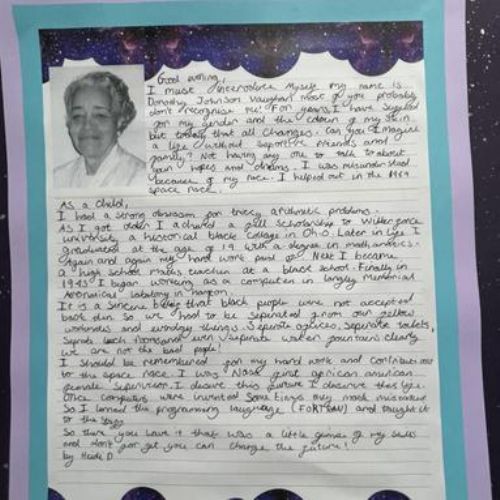 Good evening,
I must interoduce myself my name is
Dorothy Johnson Vaughan most of you probably
don't recognise me! For years I have
for my gender and the colour of my skin
but today that all changes. Can you Imagine
a life without suportive friends and
family? Not having any one to talk to about
your hopes and dreams. I was misunderstood
because of my race. I helped out in the 1969
space race.
As a child,
I had a strong obsession for tricy arithmetic problems.
As I got older I achived a full scholarship to Wilberforce
university, a historical black collage in Ohio. Later in life I
graduated at the age of 19 with a degree in mathamatics.
Again and again my hard work paid of. Next I became
a high school maths teacher at a black school. Finally in
1943 I began working as a computer in langley memorial
Aeronatical labatory in hampton.
It is a sincere that black people were not accepted
back then so we had to be seperated from our fellow
workmates and everyday things. Seperate offices, seperate toilets,
seprate lunch rooms and even seperate water fountains clearly
we are not the bad people!
I should be remembered for my hard work and contributions
to the space race. I was NASA first african american
female supervisor. I desurve this future I deserve this life.
Once computers were invented some things only made miss nature
So I lerned the programming language (FORTRAN) and taught it
to the staff
So there you have it that was a little of my
and dont for get you can change the future!
by Heidi D